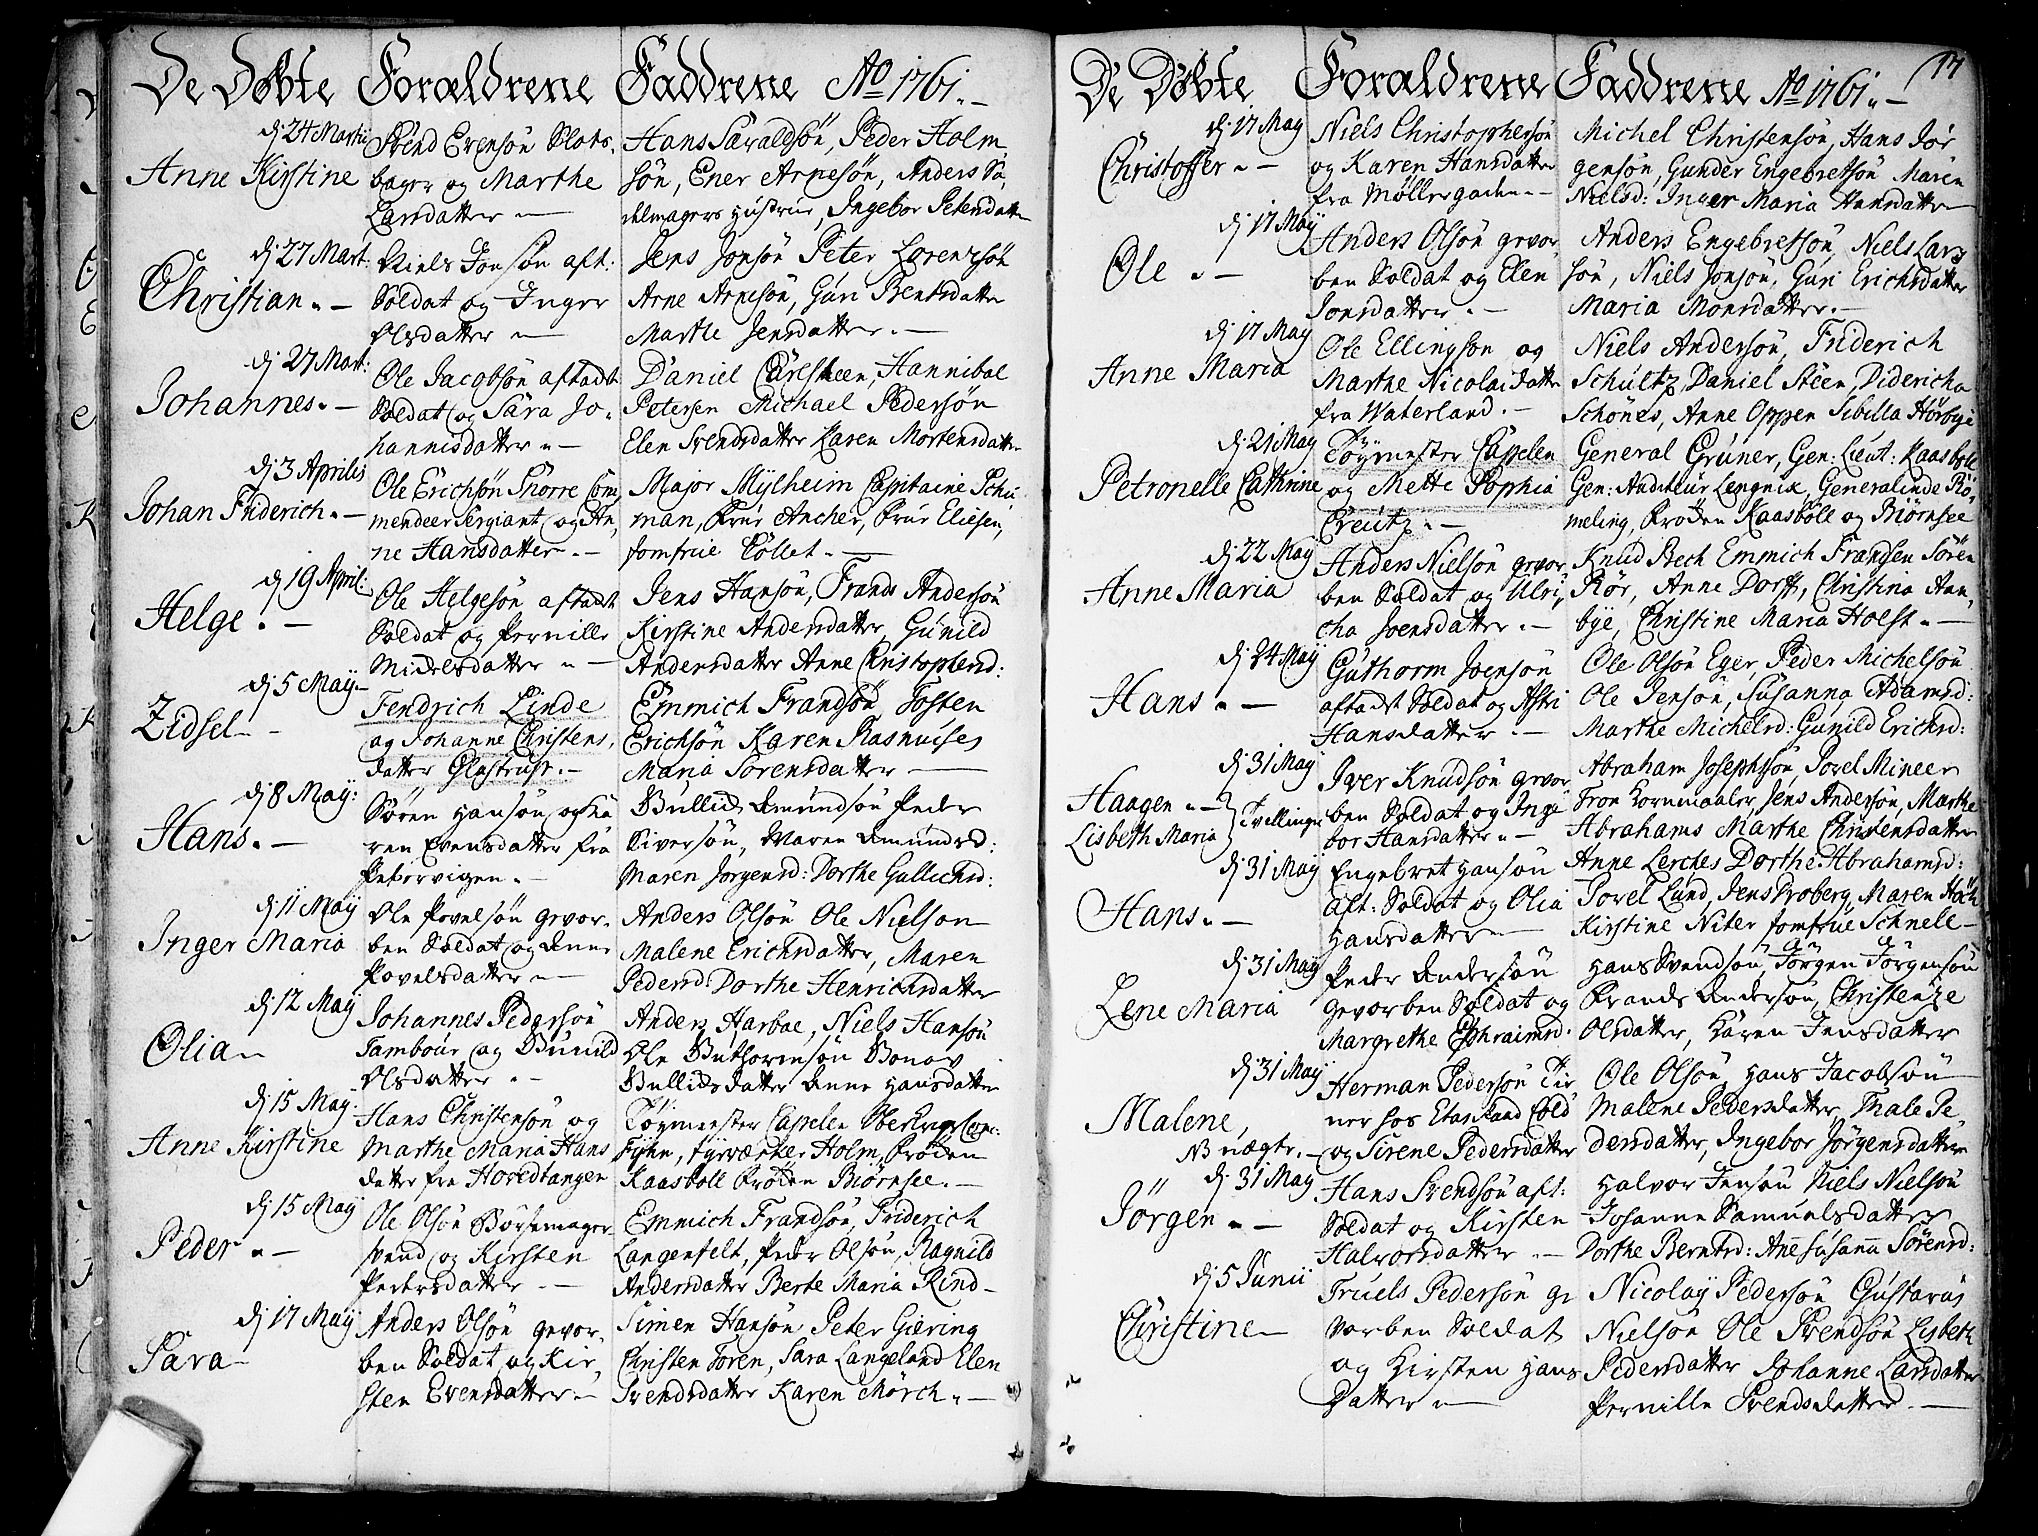 De Døbte Forældrene Faddrene Ao 1761.
dj 24 Martij
Anne Kirstine
Svend Evensön Slots-
bager og Marthe
Larsdatter
Hans Saraldsön, Peder Holm
sön, Ener Arnesön, Anders Sa,
delmagers Hustrue, Ingebor Petersdatter
dj 27 Mart:
Christian.
Niels Jonsön aft:
Soldat og Inger
Olsdatter
Jens Jonsön Peter Lorenzsön
Arne Arnesön, Guri Bentsdatter
Marthe Jensdatter.
dj 27 Mart:
Johannes.
Ole Jacobsön aftadt
Soldat og Sara Jo,
hannisdatter
Daniel Carlsteen, Hannibal
Petersen Michael Pedersön
Elen Svendsdatter Karen Mortensdatter
dj 3 Aprilis
Johan Friderich.
Ole Erichsön Snorre Com,
mendeer Sergiant, og An,
ne Hansdatter.
Major Mylheim Capitaine Schu,
man, Frue Ancher, Frue Eliesen,
Jomfrue Collet.
dj 19 April:
Helge.
Ole Helgesön aftadt
Soldat og Pernille
Michelsdatter
Jens Hansön, Frands Andersön
Kirstine Andersdatter, Gunild
Andersdatter Anne Christophersd:
dj 5 May
Zidsel
Fendrich Linde
og Johanne Christens,
datter Glostrup.
Emmich Frandsön Tosten
Erichsön Karen Rasmuses
Maria Sorensdatter
dj 8 May:
Hans.
Sören Hansön og Ka
ren Evensdatter fra
Pebervigen.
Gullich Amundsön Peder
Siversön, Maren Amundsd:
Maren Jörgensd: Dorthe Gullichsd:
dj 11 May
Inger Maria
Ole Povelsön gevor,
ben Soldat og Anne
Povelsdatter
Anders Olsön Ole Nielson
Malene Erichsdatter, Maren
Pedersd: Dorthe Henrichsdatter
dj 12 May
Olia
Johannes Pedersön
Tambour og Gunild
Olsdatter.
Anders Harboe, Niels Hansön
Ole Guthormsön
Gullichsdatter Anne Hansdatter
dj 15 May
Anne Kirstine
Hans Christensön og
Marthe Maria Hans
datter fra Hovedtangen
Töymester Cappelen
Fyhn, Fyrværker Holm, Fröden
Kaasböll Fröden Biörnsee.
dj 15 May
Peder
Ole Olsön Bösemager
svend, og Kirsten
Pedersdatter
Emmich Frandsön, Friderich
Langenfelt, Peder Olsön, Ragnild
Andersdatter Berte Maria Rind
dj 17 May
Sara
Anders Olsön gevor,
ben Soldat og Kir,
sten Evensdatter
Simen Hansön Peter Giering
Christen Toren, Sara Langeland Elen
Svendsdatter Karen Mörch.
17
De Døbte Forældrene Faddrene Ao 1761.
dj 17 May
Christoffer
Niels Christophersön
og Karen Hansdatter
fra Möllergaden
Michel Christensön, Hans Jör
gensön, Gunder Engebretsön Maren
Nielsd: Inger Maria Hansdatter
dj 17 May
Ole
Anders Olsön gevor
ben Soldat og Elen
Jonsdatter.
Anders Engebretsön, Niels Lars
sön, Niels Jonsön, Guri Erichsdatter
Maria Monsdatter.
dj 17 May
Anne Maria
Ole Ellingsön og
Marthe Nicolaidatter
fra Waterland.
Niels Andersön, Friderich
Schultz, Daniel Steen, Didericha
Schönes, Anne Oppen Sibilla Hörbye
dj 21 May
Petronelle Cathrine
Töymester Cappelen
og Mette Sophia
Creutz.
General Grüner, Gen: Lieut: Kaasböll
Gen: Auditeur Lengnik, Generalinde Rö,
meling, Fröden Kaasböll og Biörnsee
dj 22 May
Anne Maria
Anders Nielsön gevor,
ben Soldat og Ulri,
cha Joensdatter.
Knud Bech Emmich Frandsen Sören
Rör, Anne Dorff, Christina Aan,
bye, Christine Maria Holst.
dj 24 May
Hans
Guthorm Joensön
aftadt Soldat og Astri
Hansdatter.
Ole Olsön Eger, Peder Michelsön
Ole Jensön, Susanna Adamsd:
Marthe Michelsd: Gunild Erichsd:
dj 31 May
Haagen
Lisbeth Maria
Tvillinger
Iver Knudsön gevor
ben Soldat og Inge
bor Hansdatter
Abraham Josephsön, Povel Mineer
Tron Kornmaaler, Jens Andersön, Marthe
Abrahams Marthe Christensdatter
dj 31 May
Hans.
Engebret Hansön
aft: Soldat og Olia
Hansdatter
Anne Lerches Dorthe Abrahamsd:
Povel Lund, Jens Froberg, Maren
Kirstine Niter Jomfrue Schnell
dj 31 May
Lene Maria
Peder Andersön
gevorben Soldat og
Margrethe Ephraimsd:
Hans Svendsön, Jörgen Jörgensön
Frands Andersön, Christenze
Olsdatter, Karen Jensdatter
dj 31 May
Malene,
NB uægte.
Herman Pedersön Tie
ner hos Etatsraad Cold
og Sirene Pedersdatter
Ole Olsön, Hans Jacobsön
Malene Pedersdatter, Thale Pe
dersdatter, Ingebor Jörgensdatter
dj 31 May
Jörgen
Hans Svendsön aft:
Soldat og Kirsten
Halvorsdatter
Halvor Jensön Niels Nielsön
Johanne Samuelsdatter
Dorthe Berntsd: Anne Susanna Sörensd:
dj 5 Junij
Christine
Truels Pedersön ge
vorben Soldat
og Kirsten Hans
datter
Nicolay Pedersön Gustavus
Nielsön Ole Svendsön Lisbeth
Pedersdatter Johanne Larsdatter
Pernille Svendsdatter.